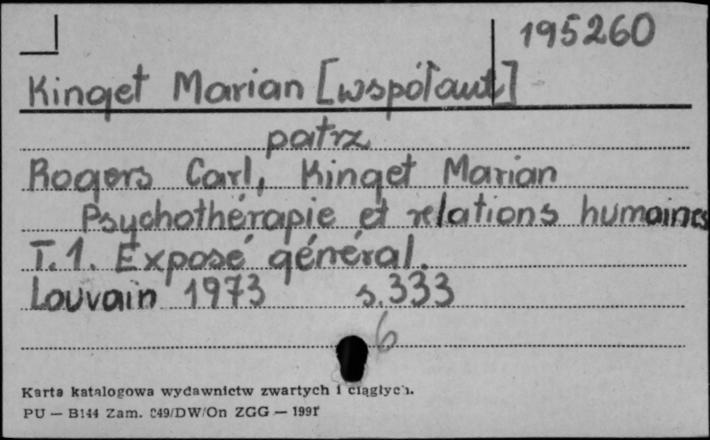 195260
Kinget Marian [współaut]
patrz
Rogers Carl, Kinget Marian
Psychothérapie et relations humaines
T.1. Exposé général.
Louvain 1973 s.333
6
Karta katalogowa wydawnictw zwartych i ciągłych.
PU — B144 Zam. 249/DW/On ZGG — 1991